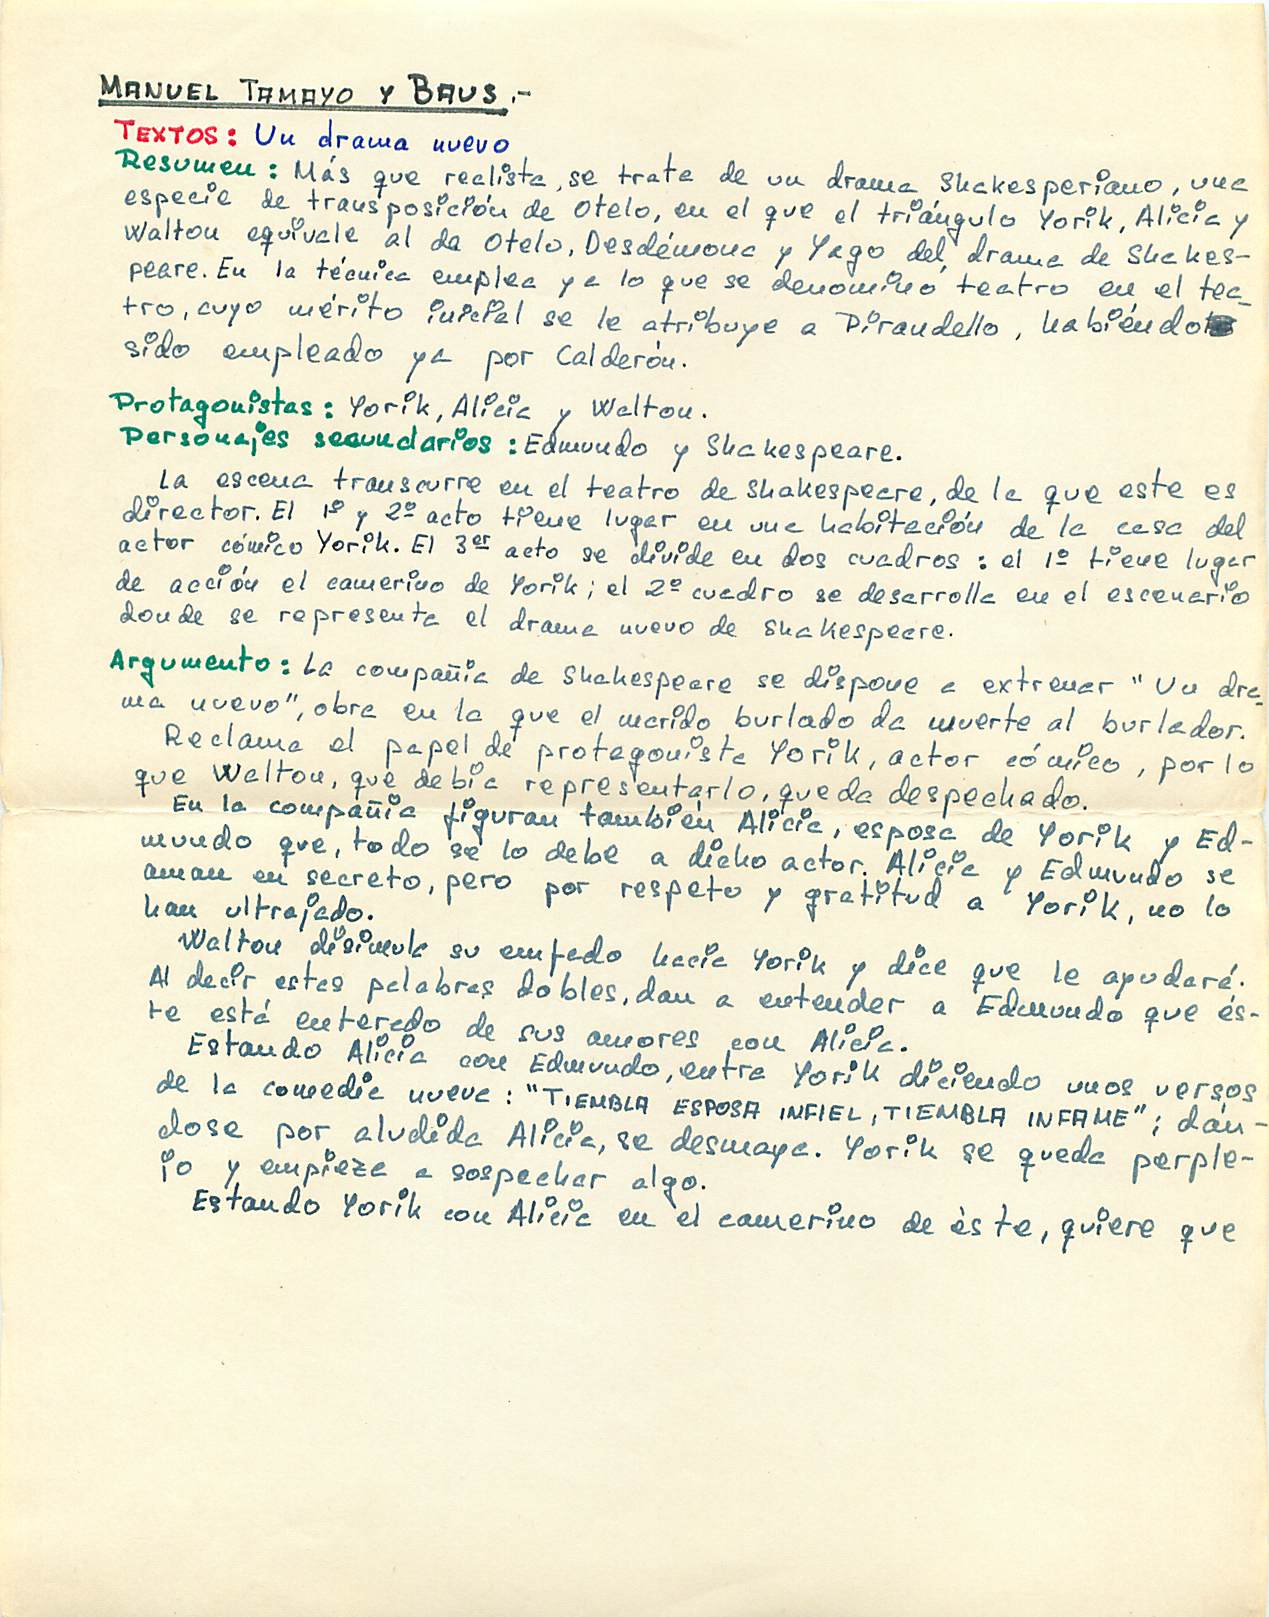 MANUEL TAMAYO Y BAUS.-
TEXTOS: Un drama nuevo
Resumen: Más que realista, se trata de un drama Shakesperiano, una
especie de transposición de Otelo, en el que el triángulo Yorik, Alicia y
Walton equivale al da Otelo, Desdémona y Yago del drama de Shakes-
peare. En la técnica emplea ya lo que se denomino teatro en el tea-
tro, cuyo mérito inicial se le atribuye a Pirandello, habiéndo
sido empleado ya por Calderón.
Protagonistas: Yorik, Alicia y Walton.
Personajes secundarios: Edmundo y Shakespeare.
La escena transcurre en el teatro de Shakespeare, de la que este es
director. El 1º y 2º acto tiene lugar en una habitación de la casa del
actor cómico Yorik. El 3er acto se divide en dos cuadros: el 1º tiene lugar
de acción el camerino de Yorik; el 2º cuadro se desarrolla en el escenario
donde se representa el drama nuevo de Shakespeare.
Argumento: La compañia de Shakespeare se dispone a extrenar "Un dra-
ma nuevo", obra en la que el marido burlado da muerte al burlador.
Reclama el papel de protagonista Yorik, actor cómico, por lo
que Walton, que debia representarlo, queda despechado.
En la compañia figuran también Alicia, esposa de Yorik y Ed-
mundo que, todo se lo debe a dicho actor. Alicia y Edmundo se
aman en secreto, pero por respeto y gratitud a Yorik, no lo
han ultrajado.
Walton disimula su enfado hacia Yorik y dice que le ayudará.
Al decir estas palabras dobles, dan a entender a Edmundo que és-
te está enterado de sus amores con Alicia.
Estando Alicia con Edmundo, entra Yorik diciendo unos versos
de la comedia nueva: "TIEMBLA ESPOSA INFIEL, TIEMBLA INFAME"; dán-
dose por aludida Alicia, se desmaya. Yorik se queda perple-
jo y empieza a sospechar algo.
Estando Yorik con Alicia en el camerino de èste, quiere que